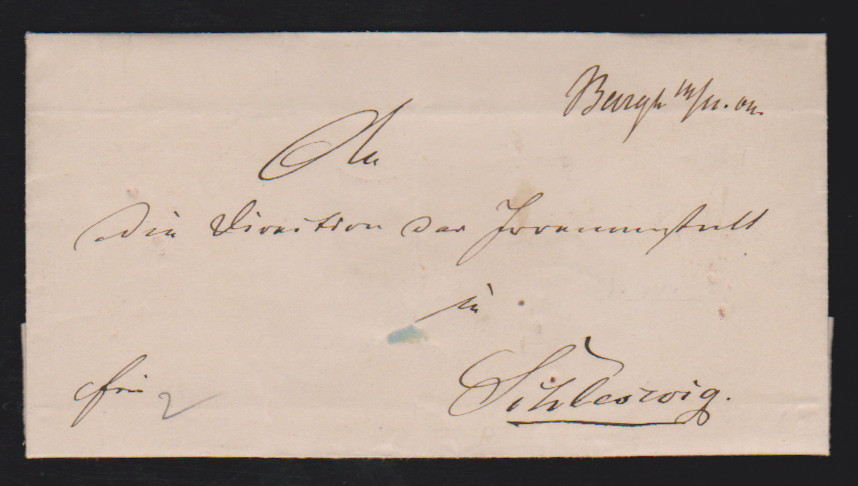 Burg
An
die Direction der Irrenanstalt
in
Schleswig.
frei